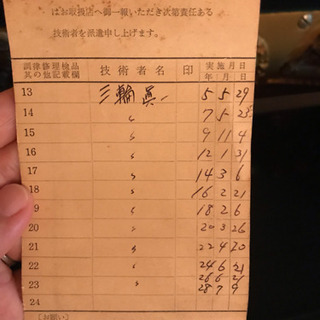 はお取扱店へ御一報いただき次第責任ある
技術者を派遣申し上げます。
調律修理検品其の他記載欄 技術者名 印 実施月日 年月日
13 三輪眞一 5 5 29
14 〃 7 5 23
15 〃 9 11 4
16 〃 12 1 31
17 〃 14 3 6
18 〃 16 2 21
19 〃 18 2 6
20 〃 20 3 26
21 〃 22 4 20
22 〃 24 6 21
26 6 21
23 〃 28 7 9
24
〔お願い〕